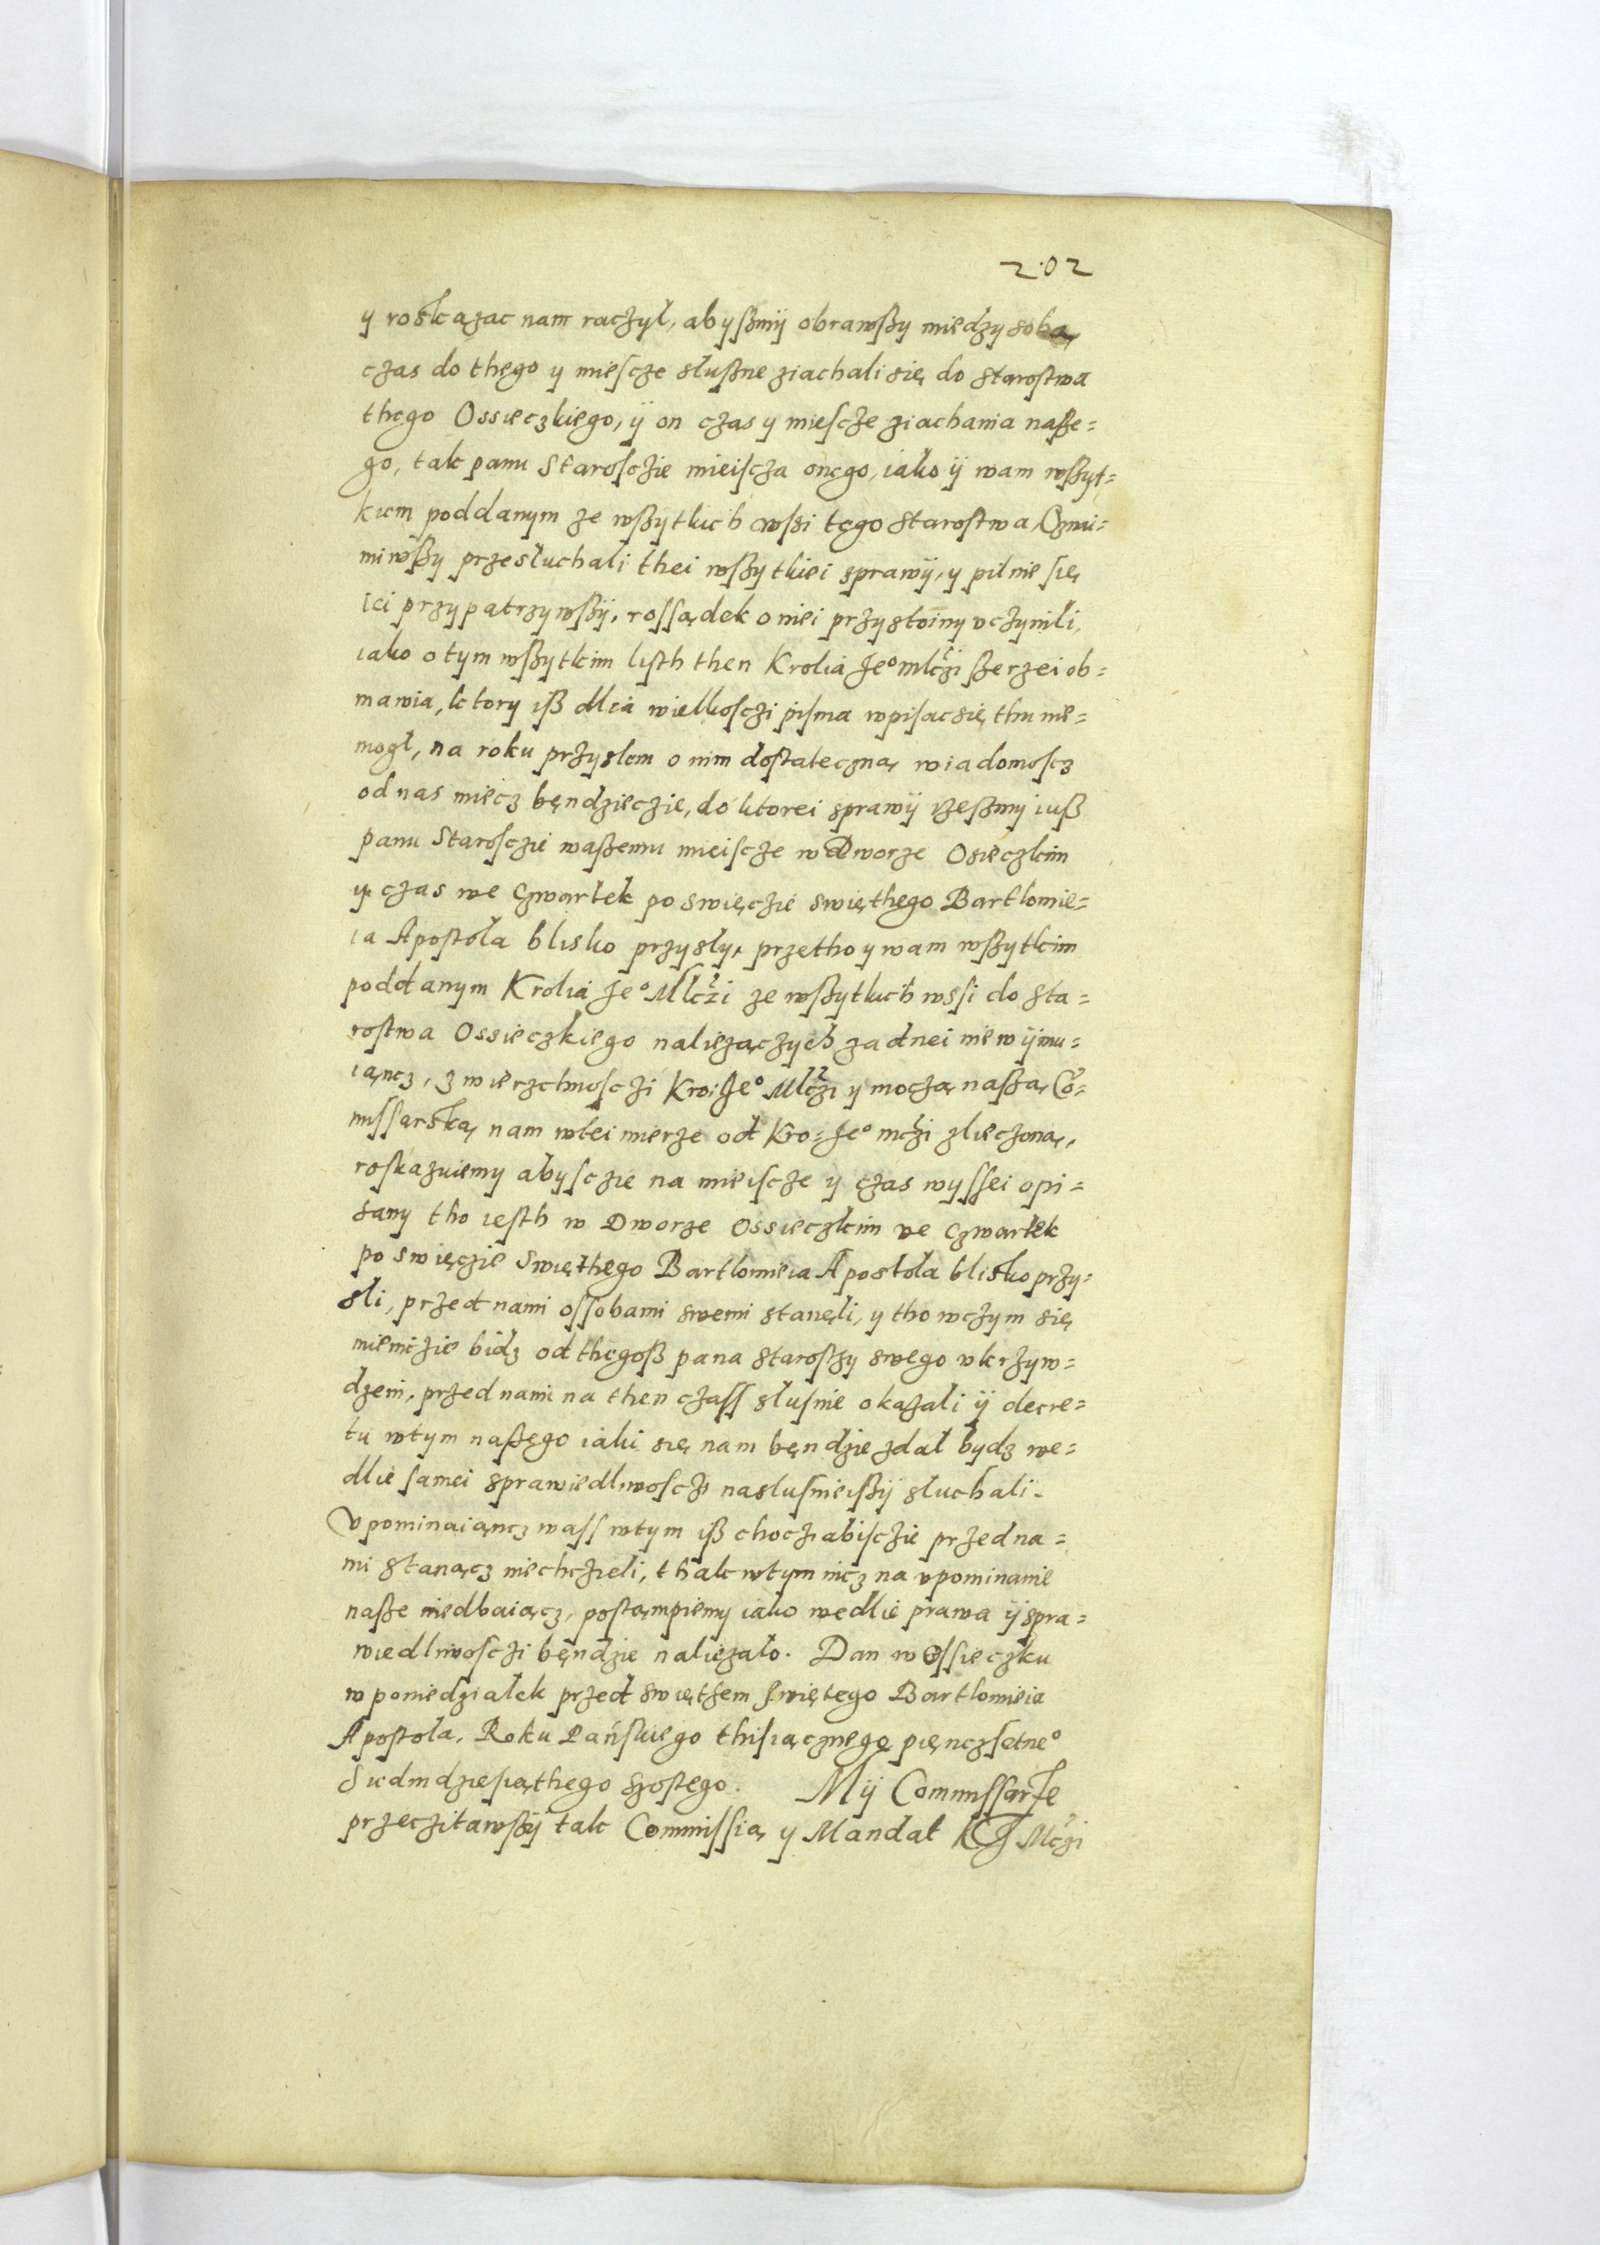 202
y roskązac nam raczył, abyßmÿ obrawßy miedzy sobą
czas do thego y miescze słußne ziachali się do starostwa
thego Ossieczkiego, ÿ on czas y miescze ziachania naße=
go, tak panu Starosczie mieiscza onego, iako ÿ wam wßyt=
kiem poddanym ze wßytkich wsi tego starostwa Oznai=
miwßy przesłuchali thei wßytkiei sprawÿ, y pilnie się
iei przypatrzywßÿ, rossądek o niei przystoiny vczynili,
iako o tym wßytkim listh then Krolia Jeo mlczi ßerzei ob=
mawia, ktory iß dlia wielkosczi pisma wpisac się thu nie=
mogł, na roku przyslem o nim dostateczną wiadomoscz
od nas miecz będzieczie, do ktorei sprawÿ iżeßmy iuß
panu Starosczie waßemu mieiscze w Dworze Osieczkim
y czas we Czwartek po swięczie swięthego Bartlomie=
ia Apostoła blisko przysły, przetho y wam wßytkim
poddanym Krolia Jeo Mlczi ze wßytkich wssi do sta=
rostwa Ossieczkiego należączych zadnei nie wÿmu=
iąncz, z wierzchnosczi Kro: Jeo Mlczi y moczą naßą Co=
missarską nam wtei mierze od Kro: Jeo mczi zlieczoną,
roskazuiemy abysczie na mieiscze y czas wyssei opi=
sany tho iesth w Dworze Ossieczkim we Czwartek
po swięczie Swięthego Bartlomieia Apostoła blisko przy=
sli, przed nami ossobami swemi stanęli, y tho wczym się
mienicżie bidz od thegoß pana starosty swego vkrzyw=
dzeni, przed nami na then czass słusnie okazali ÿ decre=
tu wtym naßego iaki się nam będzie zdał bydz we=
dlie samei sprawiedliwosczi nasłusnieißÿ słuchali.
Vpominaiąncz wass wtym iß chocziabisczie przed na=
mi stanącz niechczieli, thak wtym nicz na vpominanie
naße niedbaiącz, postąmpiemy iako wedlie prawa ÿ spra=
wiedliwosczi będzie należało. Dan w Ossieczku
w poniedziałek przed swiętsem swiętego Bartlomieia
Apostoła, Roku Pańskiego thisiącznego pięnczsetneo
Siedmdziesiąthego szostego. Mÿ Commissarze
przeczitawßÿ tak Commissią y Mandat K J Mczi